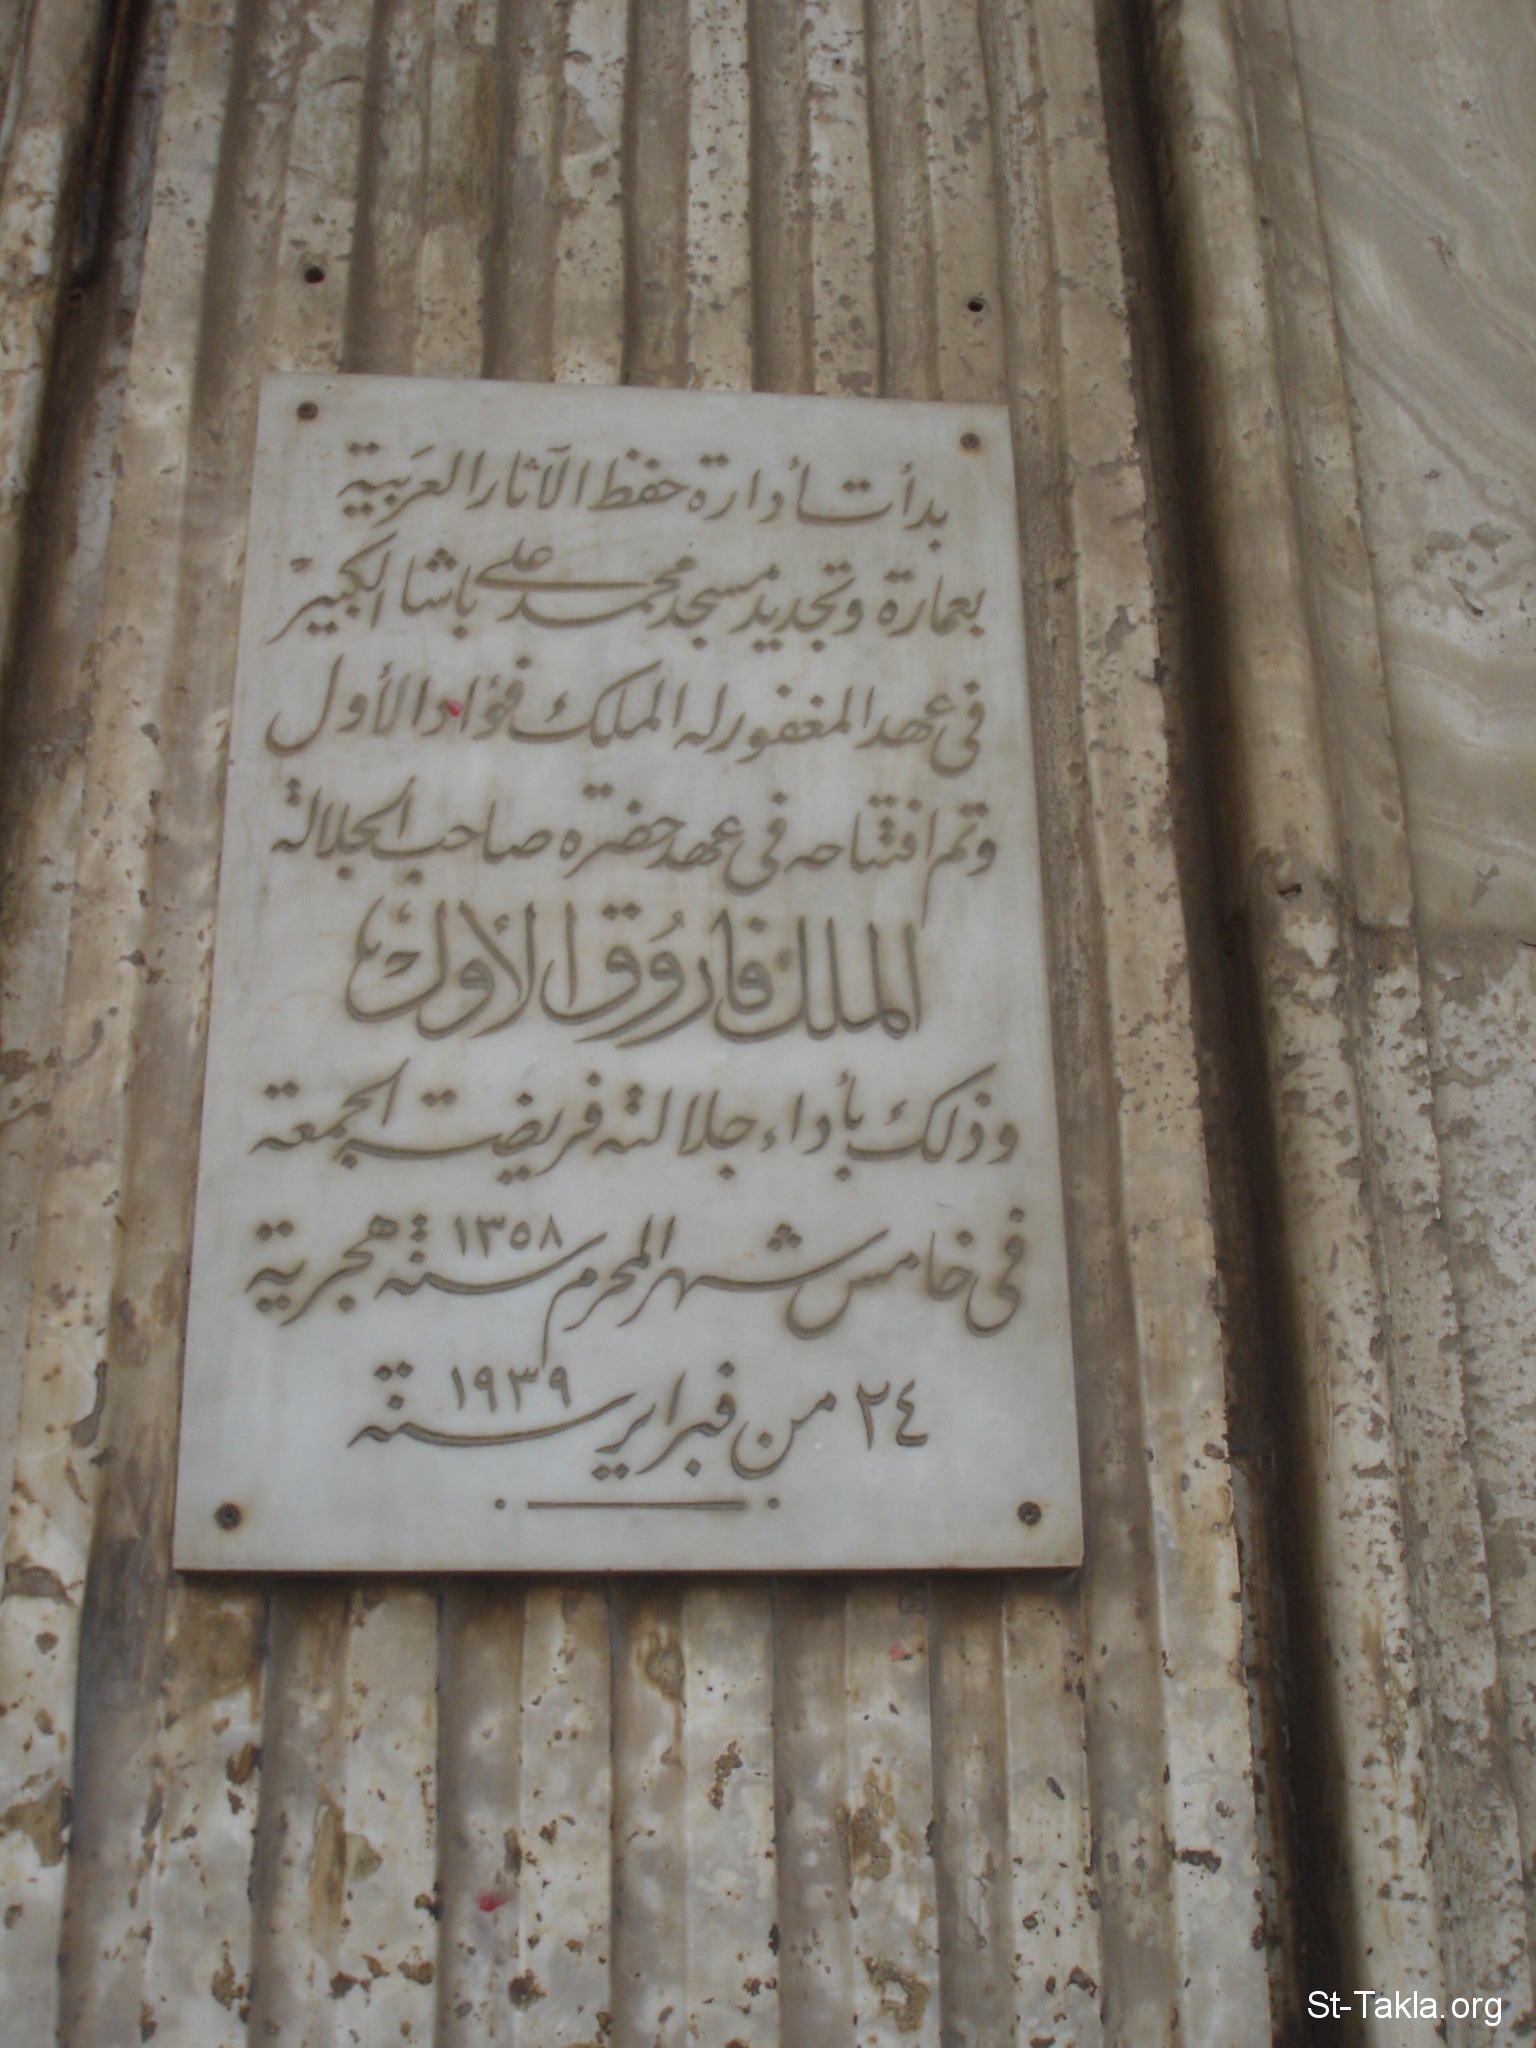 بدأت أدارة حفظ الآثار العربية
بعمارة وتجديد مسجد محمد على باشا الكبير
فى عهد المغفور له الملك فؤاد الأول
وتم افتتاحه فى عهد حضرة صاحب الجلالة
الملك فاروق الأول
وذلك بأداء جلالته فريضة الجمعة
فى خامس شهر المحرم سنة ١٣٥٨ هجرية
٢٤ من فبراير سنة ١٩٣٩
St-Takla.org